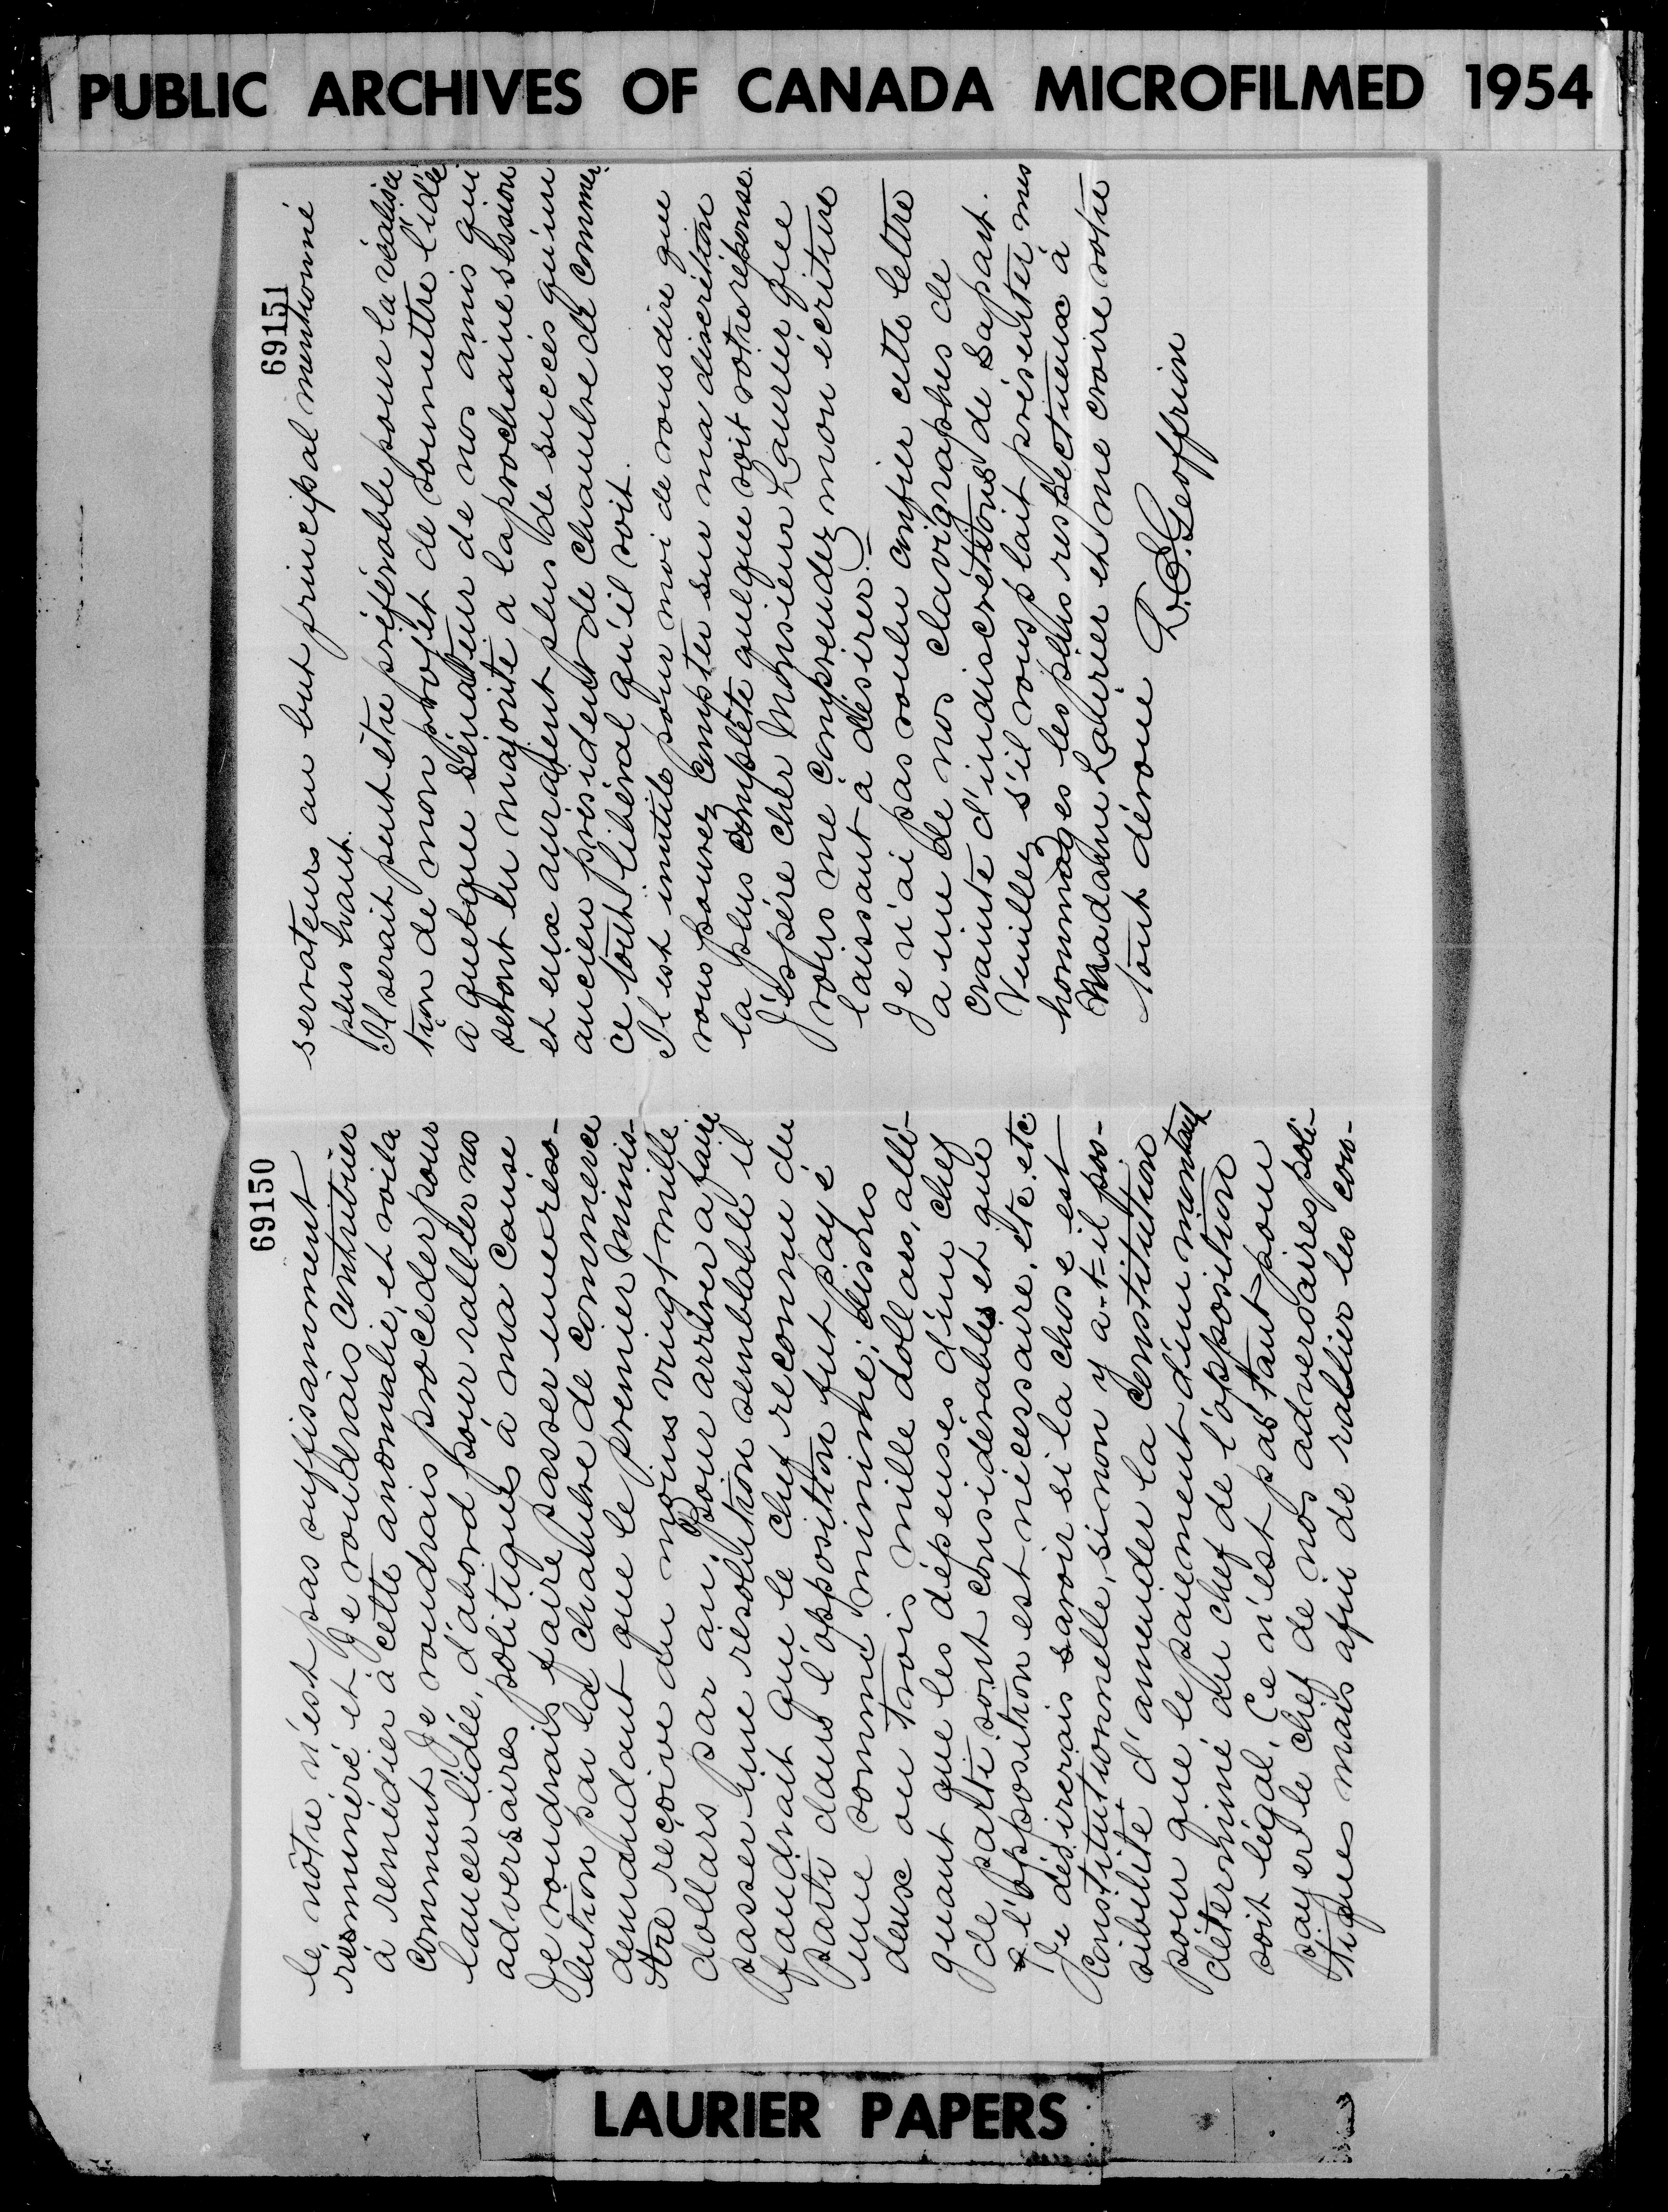 PUBLIC ARCHIVES OF CANADA MICROFILMED 1954
69150
le nôtre n'est pas suffisamment
rémunéré et je voudrais contribuer
à remédier à cette anomalie, et voila
comment je voudrais proceder pour
lancer l'idée, d'abord pour rallier nos
adversaires politiques à ma cause
Je voudrais faire passer une réso-
lution par la chambre de commerce
demandant que le premier minis-
tre reçoive au moins vingt mille
dollars par an. Pour arriver a faire
passer une resolution semblable il
faudrait que le chef reconnu du
parti dans l'opposition fut payé
une somme minime; disons
deux ou trois mille dollars, allé-
guant que les dépenses d'un chef
de parti sont considérables et que
l'opposition est nécessaire, etc. etc.
Je desirerais savoir si la chose est
constitutionnelle, sinon y a-t-il pos-
sibilité d'amender la constitution
pour que le paiement d'un montant
déterminé au chef de l'opposition
soit légal. Ce n'est pas tant pour
payer le chef de nos adversaires poli-
tiques mais afin de rallier les con-
69151
servateurs au but principal mentionné
plus haut.
Il serait peut être préférable pour la réalisa
tion de mon projet de soumettre l'idée
a quelque Sénateur de nos amis qui
seront en majorité a la prochaine session
et eux auraient plus de succès qu'un
ancien président de chambre de commer
ce tout libéral qu'il soit.
Il est inutile pour moi de vous dire que
vous pouvez compter sur ma discrétion
la plus complète quelque soit votre réponse.
J'espère cher Monsieur Laurier que
vous me comprendez mon écriture
laissant a désirer.
Je n'ai pas voulu confier cette lettre
a un de nos clavigraphes de
crainte d'indiscrétions de sa part.
Veuillez s'il vous plait présenter mes
hommages les plus respectueux à
Madame Laurier et me croire votre
tout dévoué
Geoffrion
LAURIER PAPERS